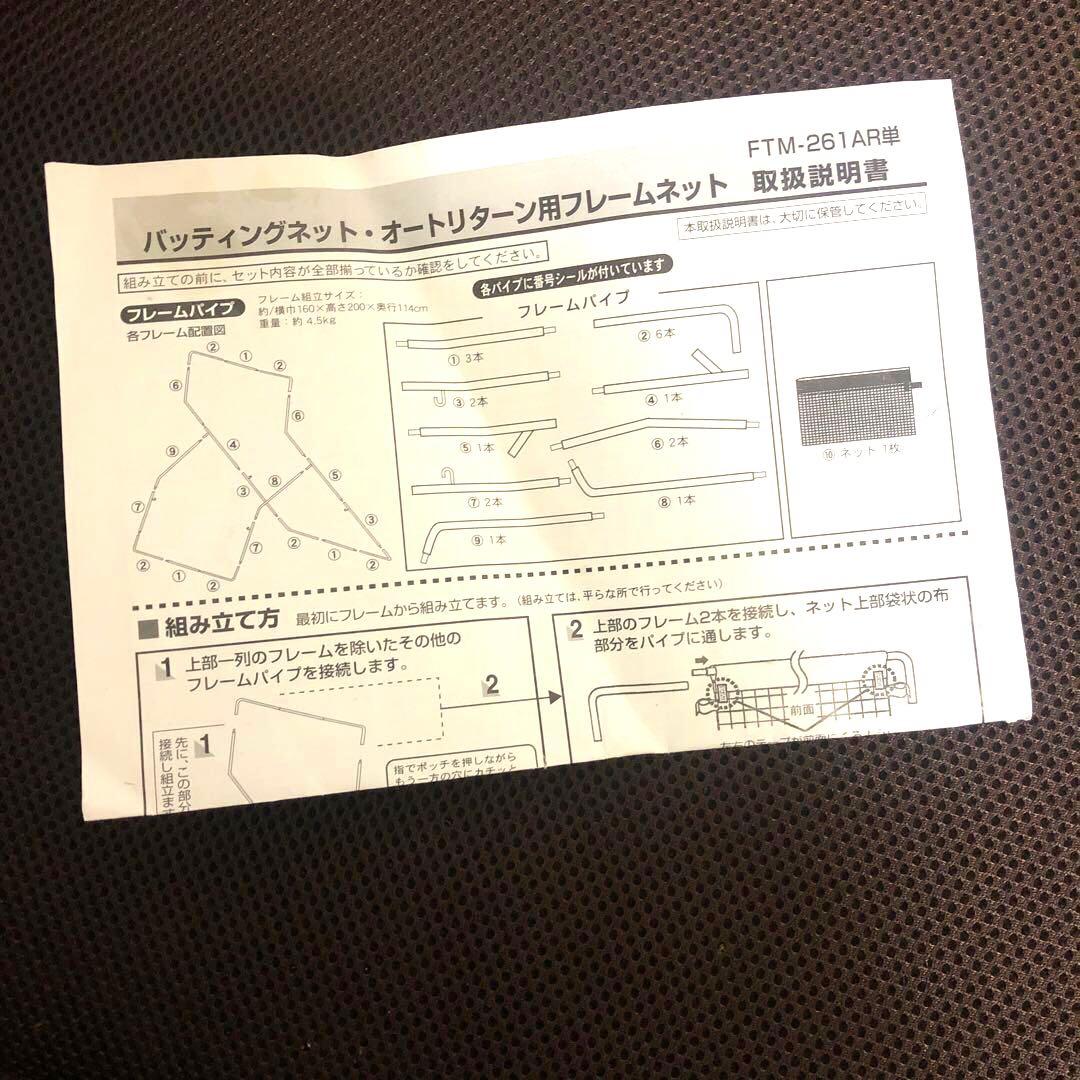 FTM-261AR単
バッティングネット・オートリターン用フレームネット 取扱説明書
本取扱説明書は、大切に保管してください。
組み立ての前に、セット内容が全部揃っているか確認をしてください。
フレームパイプ
フレーム組立サイズ：
約/横巾160×高さ200×奥行114cm
重量：約 4.5kg
各フレーム配置図
② ① ②
⑥
⑥
④
⑨
⑧
⑤
③
⑦
③
⑦
②
①
②
② ① ②
各パイプに番号シールが付いています
フレームパイプ
① 3本
② 6本
③ 2本
④ 1本
⑤ 1本
⑥ 2本
⑦ 2本
⑧ 1本
⑨ 1本
⑩ ネット 1枚
■ 組み立て方 最初にフレームから組み立てます。（組み立ては、平らな所で行ってください）
1 上部一列のフレームを除いたその他の
フレームパイプを接続します。
2
1
先に、この部分
接続し組立ます
指でポッチを押しながら
もう一方の穴にカチッと
2 上部のフレーム2本を接続し、ネット上部袋状の布
部分をパイプに通します。
前面